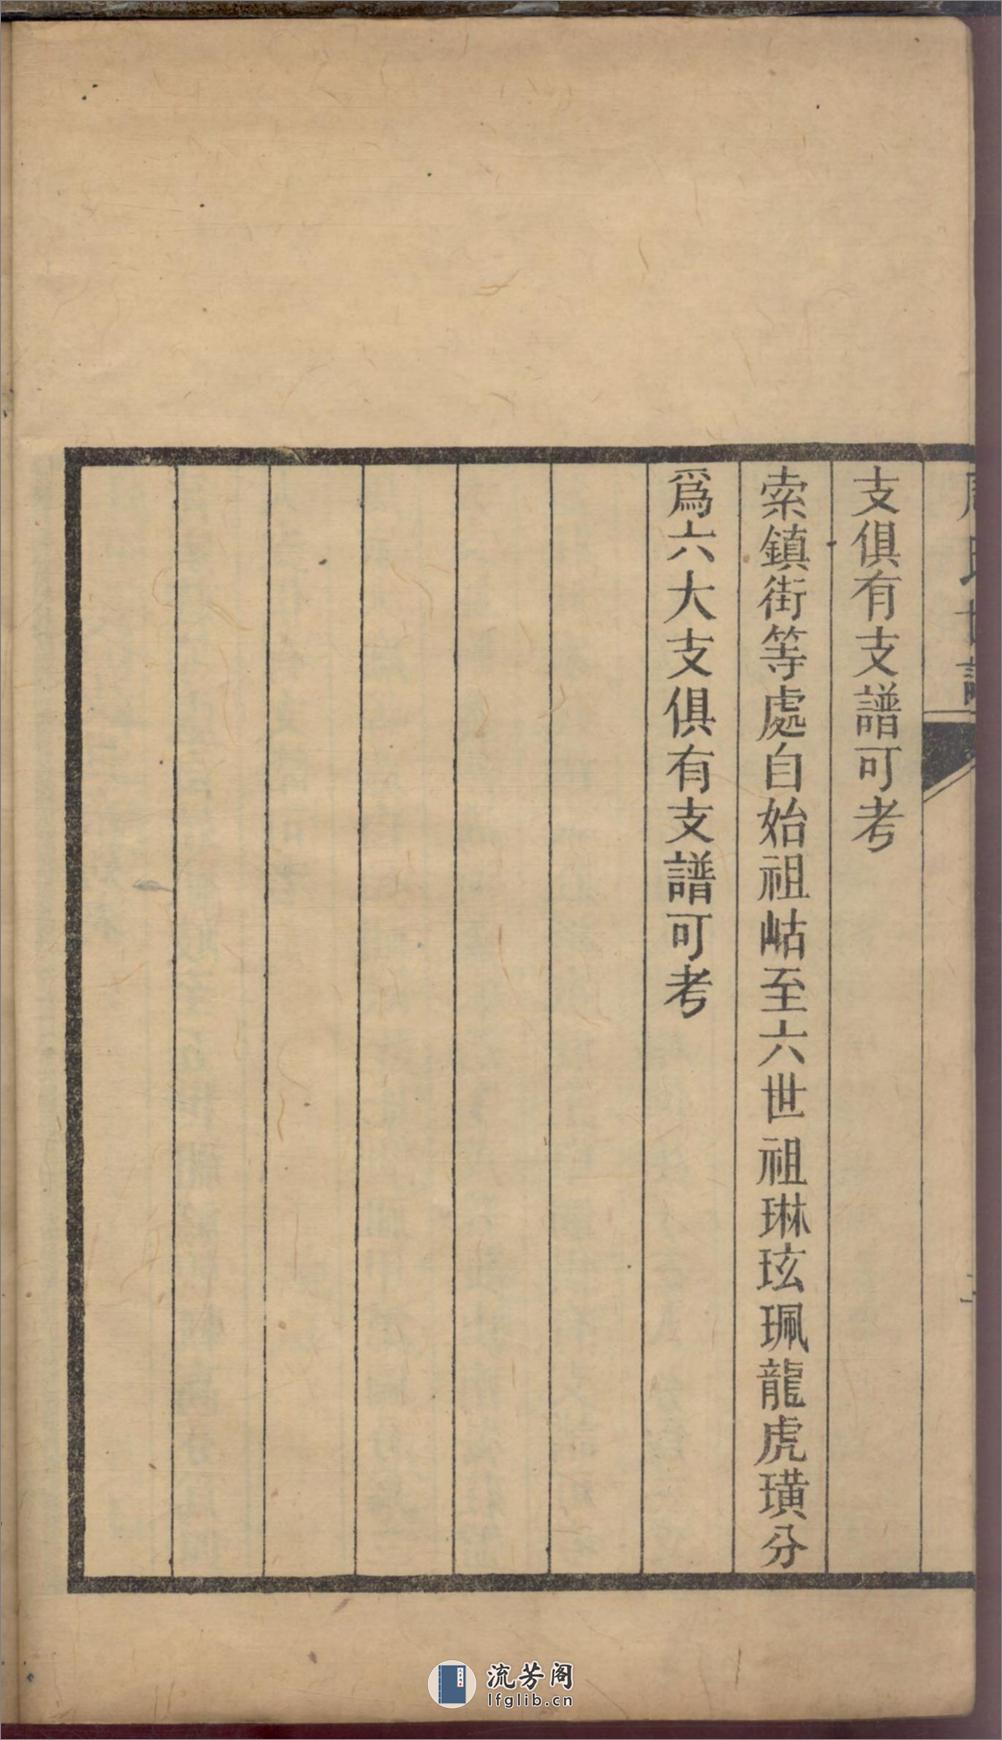 支俱有支譜可考
索鎮街等處自始祖岵至六世祖琳玹珮龍虎璜分
爲六大支俱有支譜可考
流芳阁
lfglib.cn